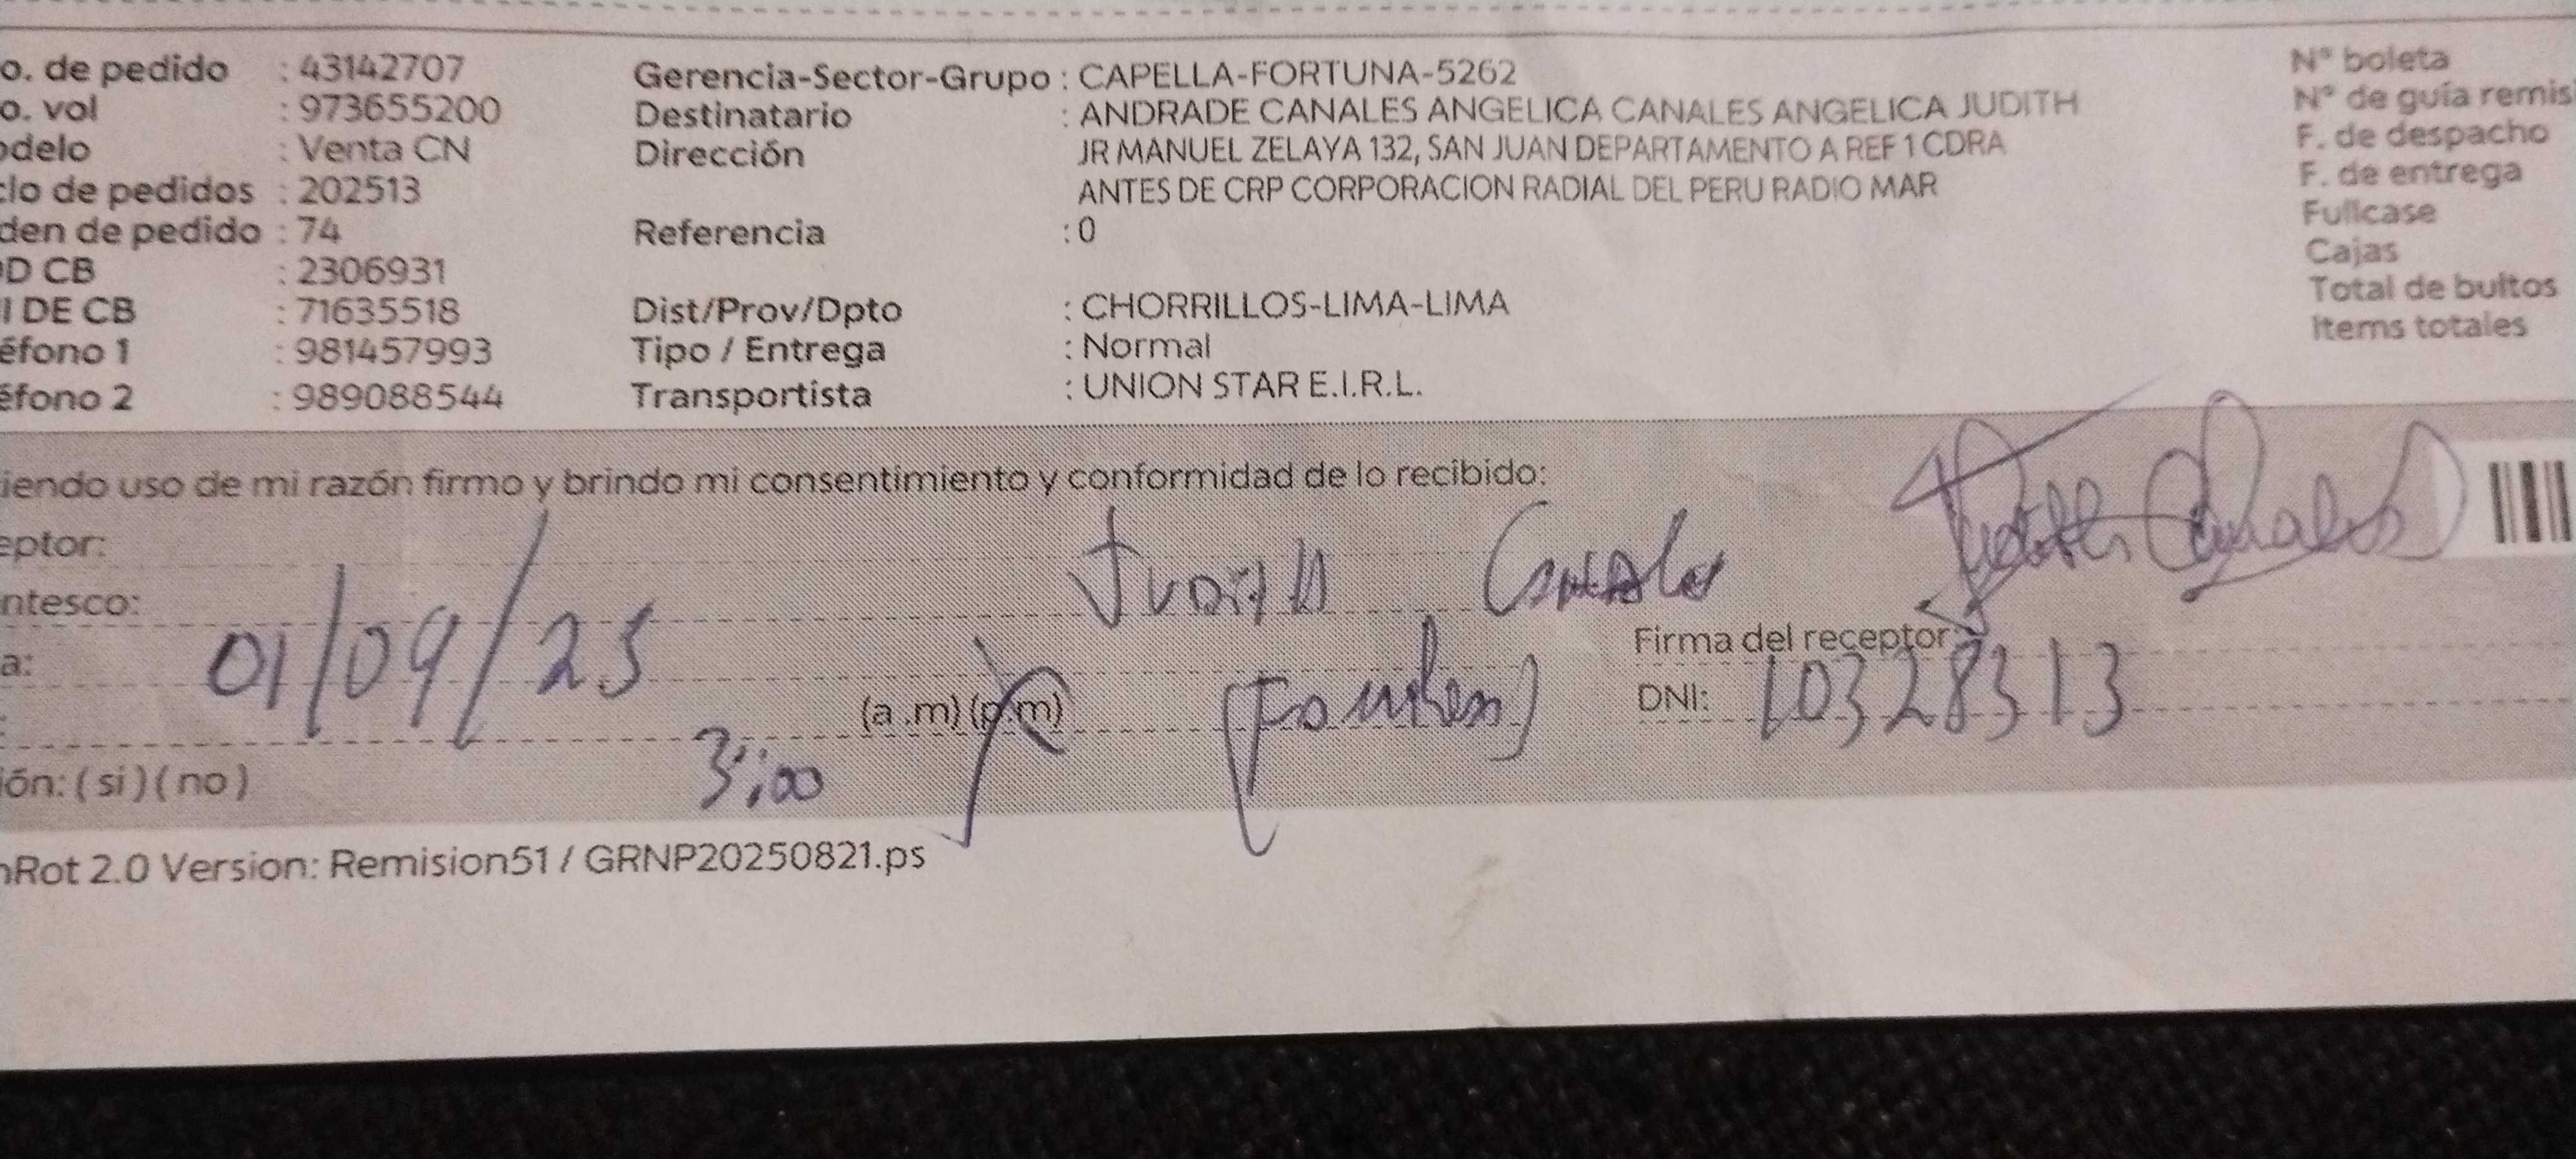 o. de pedido : 43142707
o. vol : 973655200
odelo : Venta CN
clo de pedidos : 202513
den de pedido : 74
D CB : 2306931
I DE CB : 71635518
éfono 1 : 981457993
éfono 2 : 989088544
Gerencia-Sector-Grupo : CAPELLA-FORTUNA-5262
Destinatario : ANDRADE CANALES ANGELICA CANALES ANGELICA JUDITH
Dirección JR MANUEL ZELAYA 132, SAN JUAN DEPARTAMENTO A REF 1 CDRA
ANTES DE CRP CORPORACION RADIAL DEL PERU RADIO MAR
Referencia : 0
Dist/Prov/Dpto : CHORRILLOS-LIMA-LIMA
Tipo / Entrega : Normal
Transportista : UNION STAR E.I.R.L.
N° boleta
N° de guía remis
F. de despacho
F. de entrega
Fullcase
Cajas
Total de bultos
Items totales
iendo uso de mi razón firmo y brindo mi consentimiento y conformidad de lo recibido:
eptor: Judith Canales
ntesco:
a: 01/09/25
Judith Canales
Firma del receptor
DNI: 10328313
3:00 (a .m) (p.m)
ión: ( si ) ( no )
nRot 2.0 Version: Remision51 / GRNP20250821.ps